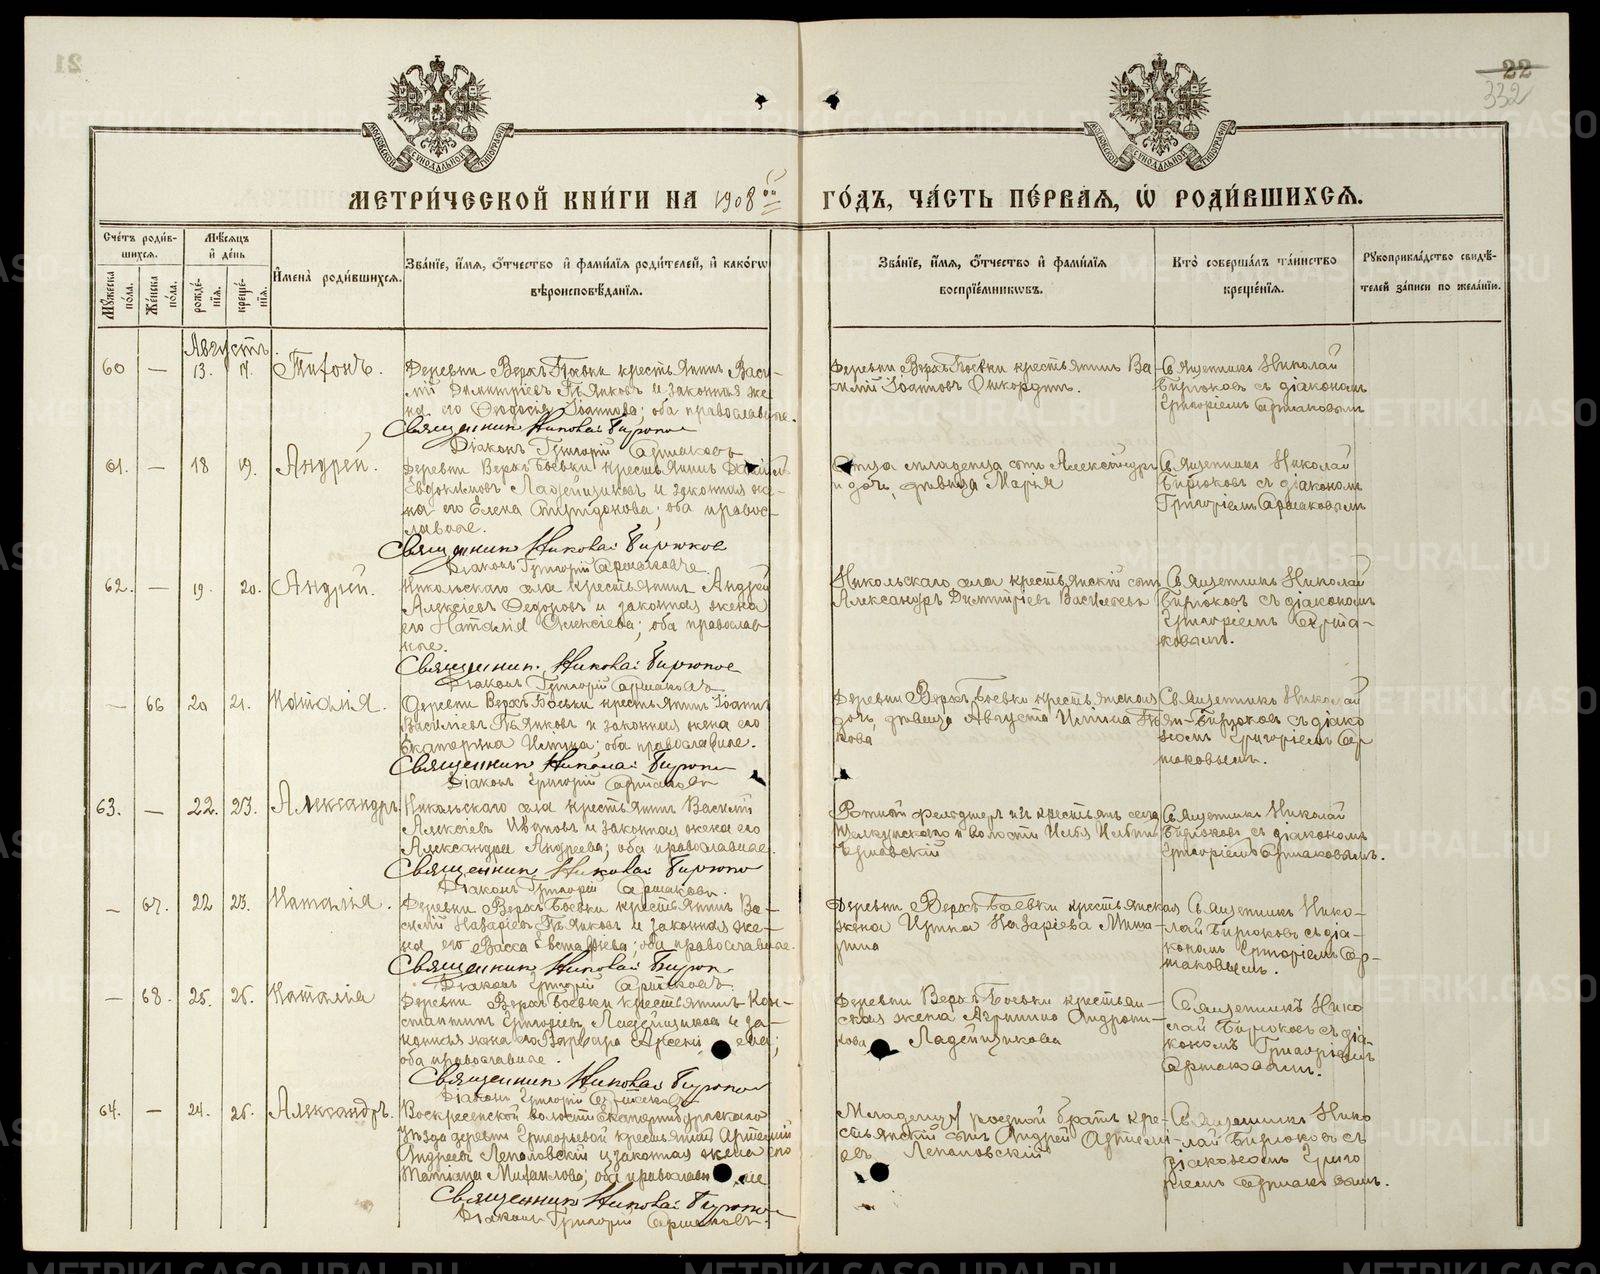 22
332
МЕТРИ́ЧЕСКОЙ КНИ́ГИ НА 1908 ой ГО́ДЪ, ЧА́СТЬ ПЕ́РВАЯ, Ѡ РОДИ́ВШИХСЯ.
Сче́тъ роди́вшихся.
Му́жеска по́ла.
Же́нска по́ла.
Мѣ́сяцъ и де́нь
рожде́нїя.
креще́нїя.
И҆мена̀ роди́вшихся.
Зва́нїе, и҆́мя, ѻ҆́тчество и҆ фами́лїя роди́телей, и҆ како́гѡ
вѣроисповѣ́данїя.
Зва́нїе, и҆́мя, ѻ҆́тчество и҆ фами́лїя
воспрїе́мникѡвъ.
Кто̀ соверша́лъ та́инство
креще́нїя.
Рꙋкоприкла́дство свидѣ́-
телей за́писи по жела́нїю.
Августъ.
60 — 13. 17. Тихонъ.
Деревни Верхъ Боевки крестьянинъ Васи-
лій Димитріевъ Пьянковъ и законная же-
на его Ѳеодосія Іоаннова; оба православные.
Священникъ Николай Бирюков
Діаконъ Григорій
Деревни Верхъ Боевки крестьянинъ Ва-
силій Іоанновъ
Священникъ Николай
Бирюковъ съ діакономъ
Григоріемъ
61. — 18 19. Андрей.
Деревни Верхъ Боевки крестьянинъ
Евдокимовъ Ладейщиковъ и законная же-
на его Елена; оба правос-
лавные.
Священникъ Николай Бирюков
Діаконъ Григорій
младенца сынъ Александръ
и дочь, дѣвица Марія
Священникъ Николай
Бирюковъ съ діакономъ
Григоріемъ
62. — 19. 20. Андрей.
Никольскаго села крестьянинъ Андрей
Алексіевъ Ѳедоровъ и законная жена
его Наталія Алексіева; оба православ-
ные.
Священник. Николай Бирюков
Діаконъ Григорій
Никольскаго села крестьянскій сынъ
Александръ Димитріевъ Васильевъ
Священникъ Николай
Бирюковъ съ діакономъ
Григоріемъ
— 66 20 21. Наталія.
Деревни Верхъ Боевки крестьянинъ Іоаннъ
Васильевъ Пьянковъ и законная жена его
Екатерина Ильина; оба православные.
Священникъ Николай Бирюков
Діаконъ Григорій
Деревни Верхъ Боевки крестьянская
дочь, дѣвица Августа Ильина Пьян-
кова
Священникъ Николай
Бирюковъ съ діако
номъ Григоріемъ
63. — 22. 23. Александръ.
Никольскаго села крестьянинъ Василій
Алексіевъ Ивановъ и законная жена его
Александра Андреева; оба православные.
Священникъ Николай Бирюков
Діаконъ Григорій
Ротный фельдшеръ изъ крестьянъ села
волости Илья Ильинъ
Священникъ Николай
Бирюковъ съ діакономъ
Григоріемъ
— 67. 22 23. Наталія.
Деревни Верхъ Боевки крестьянинъ Ва-
силій Назаріевъ Пьянковъ и законная же-
на его Васса Евстафіева; оба православные.
Священникъ Николай Бирюк
Діаконъ Григорій
Деревни Верхъ Боевки крестьянская
жена Ирина Назаріева
Священникъ Нико-
лай Бирюковъ съ діа-
кономъ Григоріемъ
— 68. 25. 26. Наталія
Деревни Верхъ Боевки крестьянинъ Кон-
стантинъ Григоріевъ Ладейщиковъ и за-
конная жена его Варвара
оба православные.
Священникъ Николай Бирюков
Діаконъ Григорій
Деревни Верхъ Боевки крестьян-
ская жена Агрипина Андрони-
кова Ладейщикова
Священникъ Нико
лай Бирюковъ съ діа-
кономъ Григоріемъ
64. — 24. 26. Александръ.
Воскресенской волости Екатеринбургскаго
уѣзда деревни Григорьевой крестьянинъ Артемій
Андреевъ Лепаловскій и законная жена его
Татіана Михаилова; оба православные
Священникъ Николай Бирюков
Діаконъ Григорій
Младенцу родной братъ кре-
стьянскій сынъ Андрей Артемі-
евъ Лепаловскій
Священникъ Нико
лай Бирюковъ съ
діакономъ Григо
ріемъ
METRIKI.GASO-URAL.RU